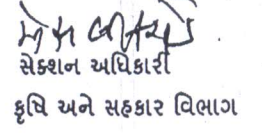 સેક્શન અધિકારી
કૃષિ અને સહકાર વિભાગ